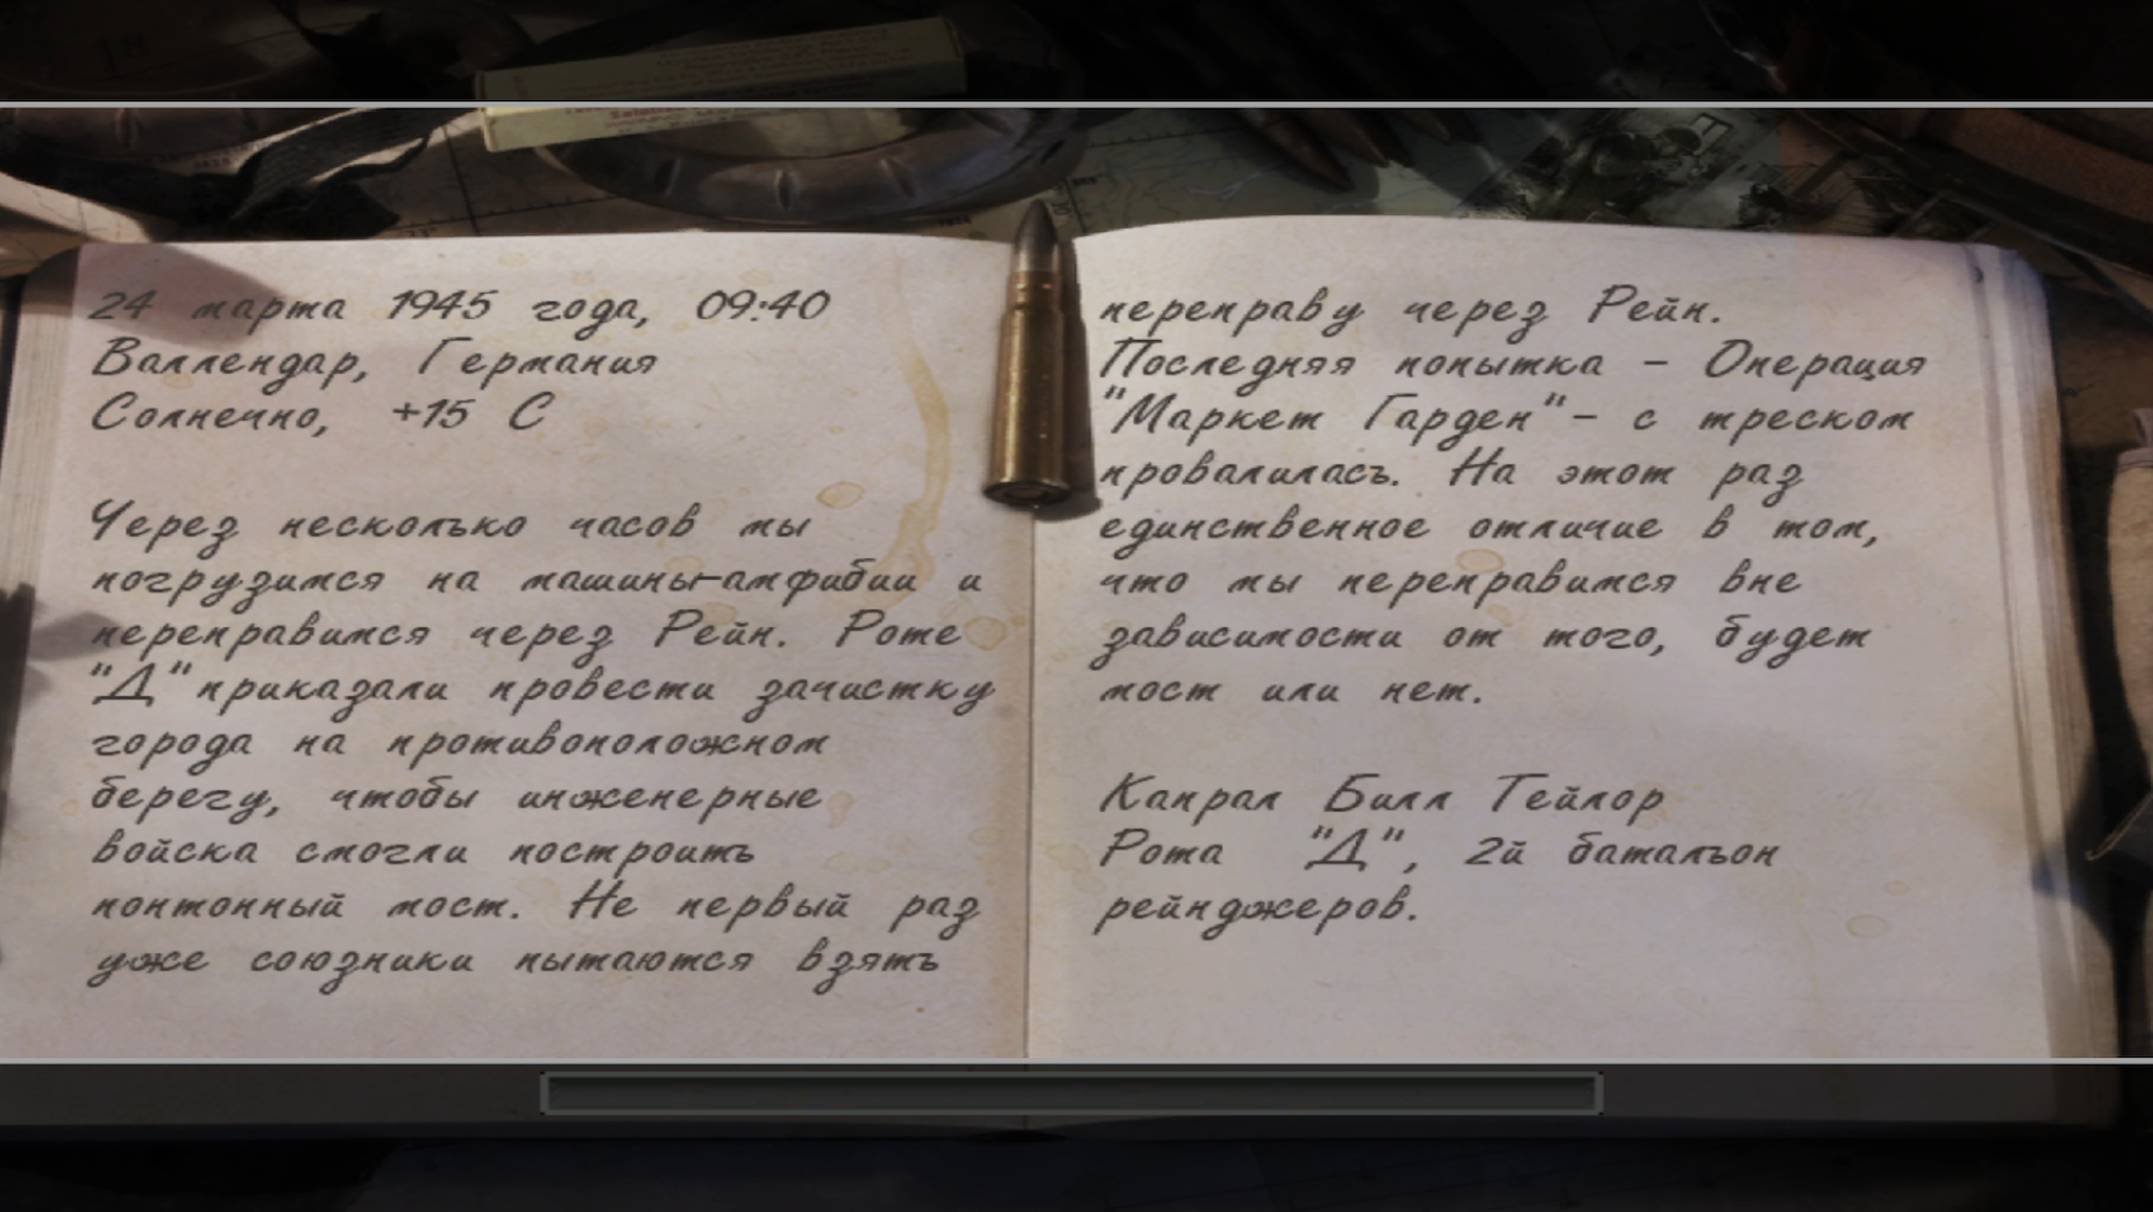 24 марта 1945 года, 09:40
Валлендар, Германия
Солнечно, +15 С
Через несколько часов мы
погрузимся на машины-амфибии и
переправимся через Рейн. Роте
"Д" приказали провести зачистку
города на противоположном
берегу, чтобы инженерные
войска смогли построить
понтонный мост. Не первый раз
уже союзники пытаются взять
переправу через Рейн.
Последняя попытка - Операция
"Маркет Гарден" - с треском
провалилась. На этот раз
единственное отличие в том,
что мы переправимся вне
зависимости от того, будет
мост или нет.
Капрал Билл Тейлор
Рота "Д", 2й батальон
рейнджеров.